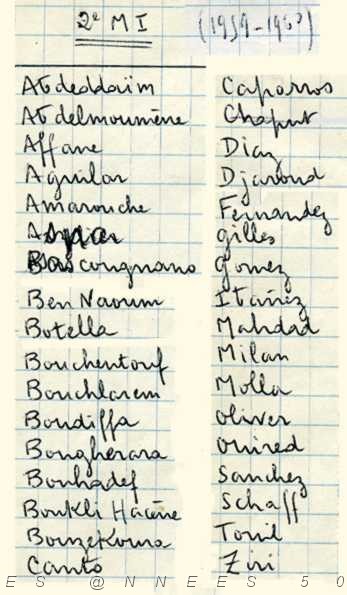 2e M I (1959-1960)
Abdeddaïm
Abdelmoumène
Affane
Aguilar
Amarouche
Bascougnano
Ben Naoum
Botella
Bouchentouf
Bouchlarem
Boudiffa
Bougherara
Bouhadef
Boukli Hacène
Bouzekoura
Canto
Caparros
Chaput
Diaz
Djaroud
Fernandez
Gilles
Gomez
Itanez
Mahdad
Milan
Molla
Oliver
Ouired
Sanchez
Schaff
Touil
Ziri
E S @ N N E E S 5 0